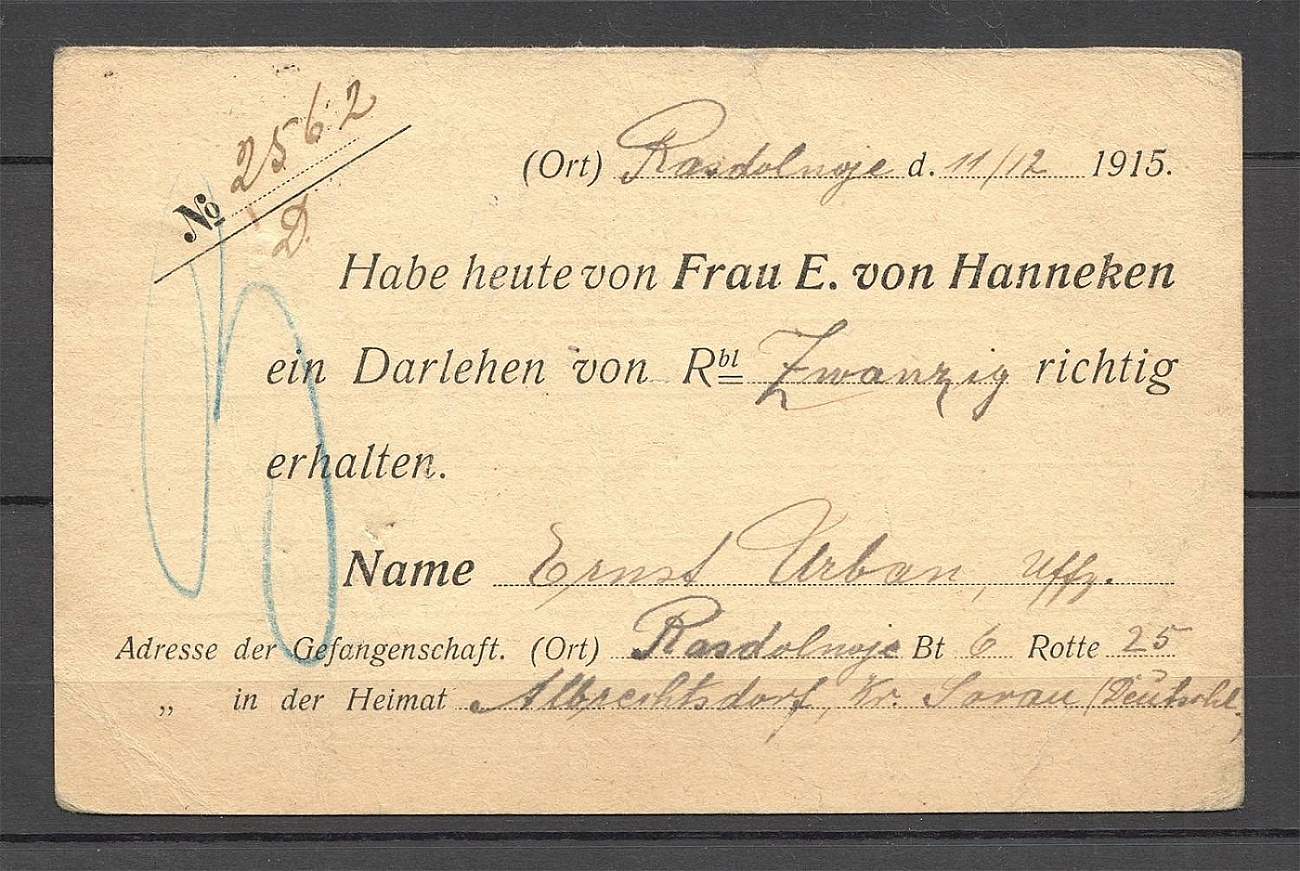 № 2562
D.
(Ort) Rasdolnoje d. 11/12 1915.
Habe heute von Frau E. von Hanneken
ein Darlehen von Rbl Zwanzig richtig
erhalten.
Name Ernst Urban, Uffz.
Adresse der Gefangenschaft. (Ort) Rasdolnoje Bt 6 Rotte 25
„ in der Heimat Albrechtsdorf, Kr. Sorau (Deutschl.